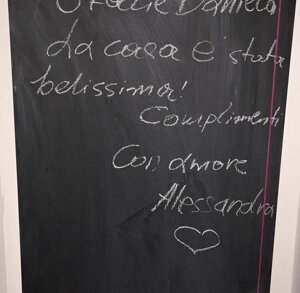 Gracie Daniela
La casa e' stata
belissima!
Complimenti
Con amore
Alessandra